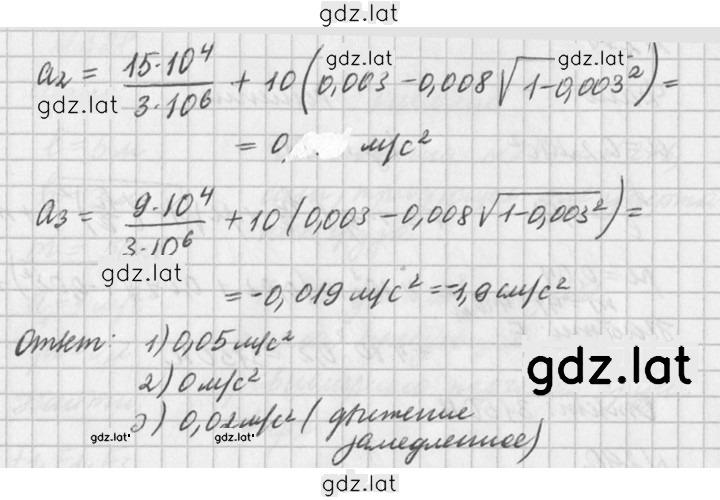 gdz.lat
a₂ = 15·10⁴ / 3·10⁶ + 10(0,003 − 0,008√(1−0,003²)) =
gdz.lat
gdz.lat
gdz.lat
= 0, м/с²
a₃ = 9·10⁴ / 3·10⁶ + 10(0,003 − 0,008√(1−0,003²)) =
gdz.lat
= −0,019 м/с² = −1,9 см/с²
Ответ: 1) 0,05 м/с²
gdz.lat
2) 0 м/с²
3) 0,02 м/с² (движение
gdz.lat
gdz.lat
замедленное)
gdz.lat